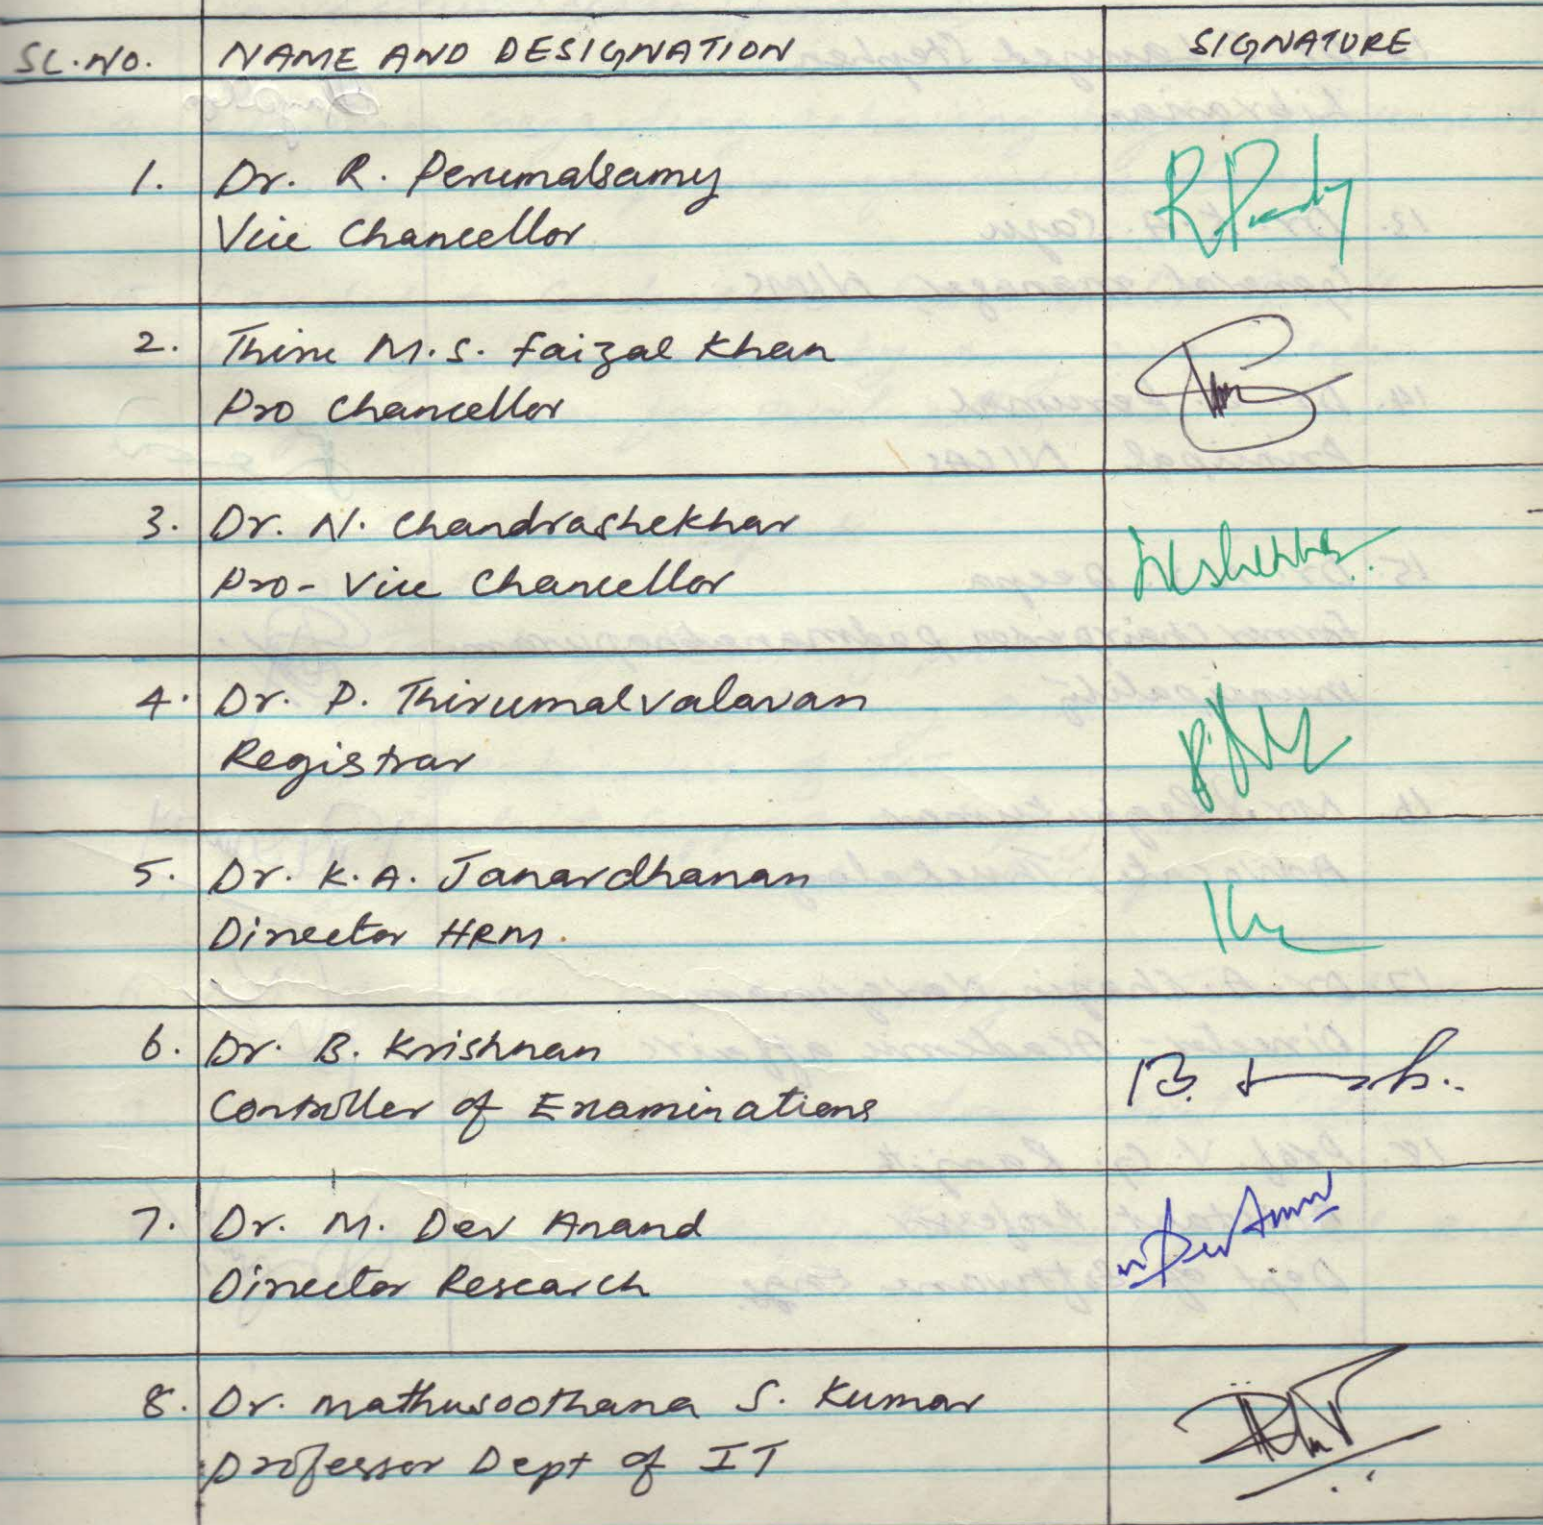 SL.NO. NAME AND DESIGNATION SIGNATURE
1. Dr. R. Perumalsamy
Vice Chancellor
2. Thiru M.S. Faizal Khan
Pro Chancellor
3. Dr. N. Chandrashekhar
Pro-Vice Chancellor
4. Dr. P. Thirumalvalavan
Registrar
5. Dr. K.A. Janardhanan
Director HRM.
6. Dr. B. Krishnan
Controller of Examinations
7. Dr. M. Dev Anand
Director Research
8. Dr. Mathusoothana S. Kumar
Professor Dept of IT